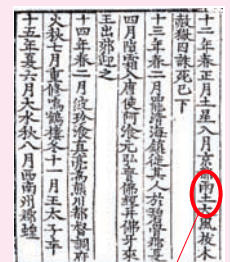 十二年春正月土星入月京都雨土大風拔木
赦獄囚誅死已下
十三年春二月罷淸海鎭徙其人於碧骨郡夏
四月隕霜入唐使阿飡元弘齎佛經幷佛牙來
王出郊迎之
十四年春二月波珍飡眞亮爲熊川都督調府
火秋七月重修鳴鶴樓冬十一月王太子卒
十五年夏六月大水秋八月西南州郡蝗